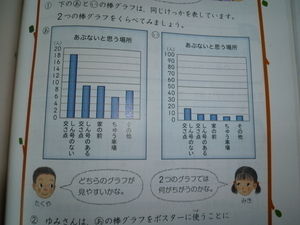 ① 下のあといの棒グラフは、同じけっかを表しています。
2つの棒グラフをくらべてみましょう。
あ
(人) あぶないと思う場所
20
18
16
14
12
10
8
6
4
2
0
しん号のない交さ点
しん号のある交さ点
家の前
ちゅう車場
その他
い
(人) あぶないと思う場所
100
50
0
しん号のない交さ点
しん号のある交さ点
家の前
ちゅう車場
その他
どちらのグラフが
見やすいかな。
たくや
2つのグラフでは
何がちがうのかな。
みき
② ゆみさんは、あの棒グラフをポスターに使うことに